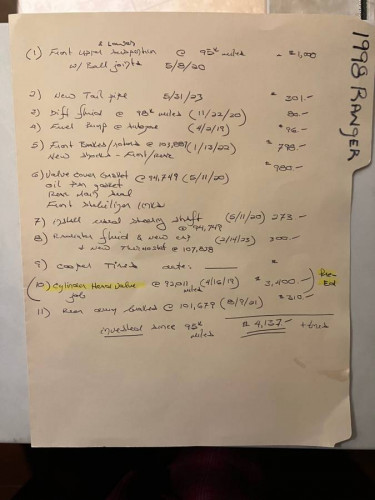 1998 RANGER
& Lower
(1) Front upper suspension @ 95K miles - $1,000
w/ Ball joints 5/8/20
2) New Tail pipe 5/31/23 $301.-
3) Diff fluid @ 98K miles (11/22/20) 80.-
4) Fuel Pump @ (4/2/19) $96.-
5) Front Brakes/rotors @ 103,881 (1/13/22) $798.-
New Shocks - Front/Rear $980.-
6) Valve cover Gasket @ 94,749 (5/11/20)
oil pan gasket
Rear main seal
Front Stabilizer links
7) install steering shaft (5/11/20) 273.-
@ 94,749
8) Radiator fluid & new cap (2/14/23) 200.-
& new Thermostat @ 107,858
9) Cooper Tires date: $
(10) Cylinder Head Valve @ 92,011 miles (4/16/19) $3,400.-)
job
11) Rear @ 101,679 $210.-
invested since 95K miles $4,137.- + tires